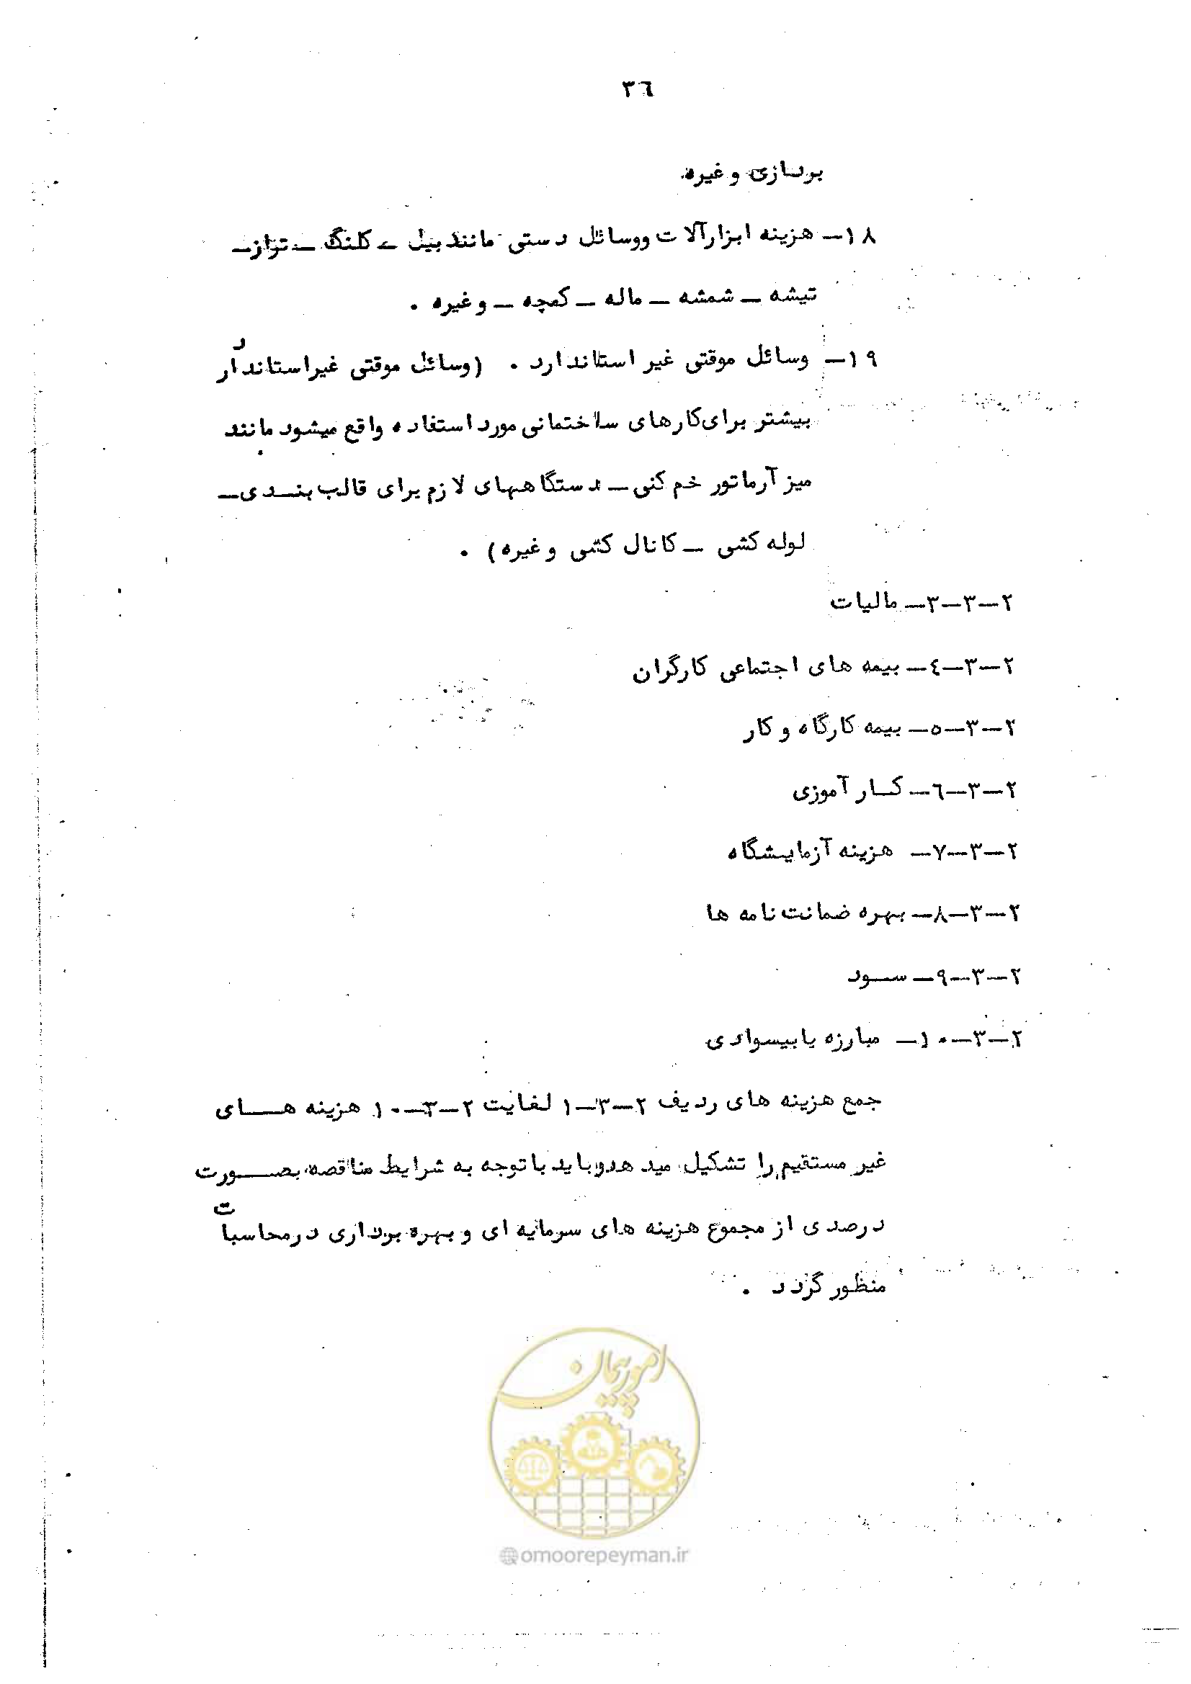 ٣٦
بردازی و غیره.
١٨ــ هزینه ابزارآلات ووسائل دستی مانند بیل ــ کلنگ ــ تراز ــ
تیشه ــ شمشه ــ ماله ــ کمچه ــ وغیره .
١٩ــ وسائل موقتی غیر استاندارد . (وسائل موقتی غیراستاندارد
بیشتر برای‌کارهای ساختمانی مورد استفاده واقع میشود مانند
میز آرماتور خم کنی ــ دستگاههای لازم برای قالب بندی ــ
لوله کشی ــ کانال کشی وغیره) .
٢ــ٣ــ٣ــ مالیات
٢ــ٣ــ٤ــ بیمه های اجتماعی کارگران
٢ــ٣ــ٥ــ بیمه کارگاه و کار
٢ــ٣ــ٦ــ کار آموزی
٢ــ٣ــ٧ــ هزینه آزمایشگاه
٢ــ٣ــ٨ــ بهره ضمانت نامه ها
٢ــ٣ــ٩ــ سود
٢ــ٣ــ١٠ــ مبارزه با بیسوادی
جمع هزینه های ردیف ٢ــ٣ــ١ لغایت ٢ــ٣ــ١٠ هزینه های
غیر مستقیم را تشکیل میدهدو باید با توجه به شرایط مناقصه بصورت
درصدی از مجموع هزینه های سرمایه ای و بهره برداری درمحاسبات
منظور گردد .
امور پیمان
omoorepeyman.ir